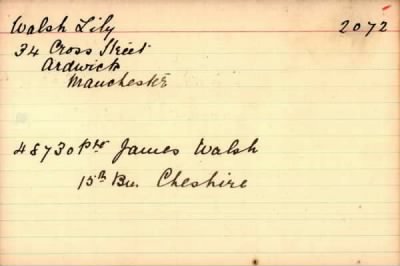 Walsh Lily 2072
34 Cross Street
Ardwick
Manchester
48730 Pte James Walsh
15th Bn. Cheshire